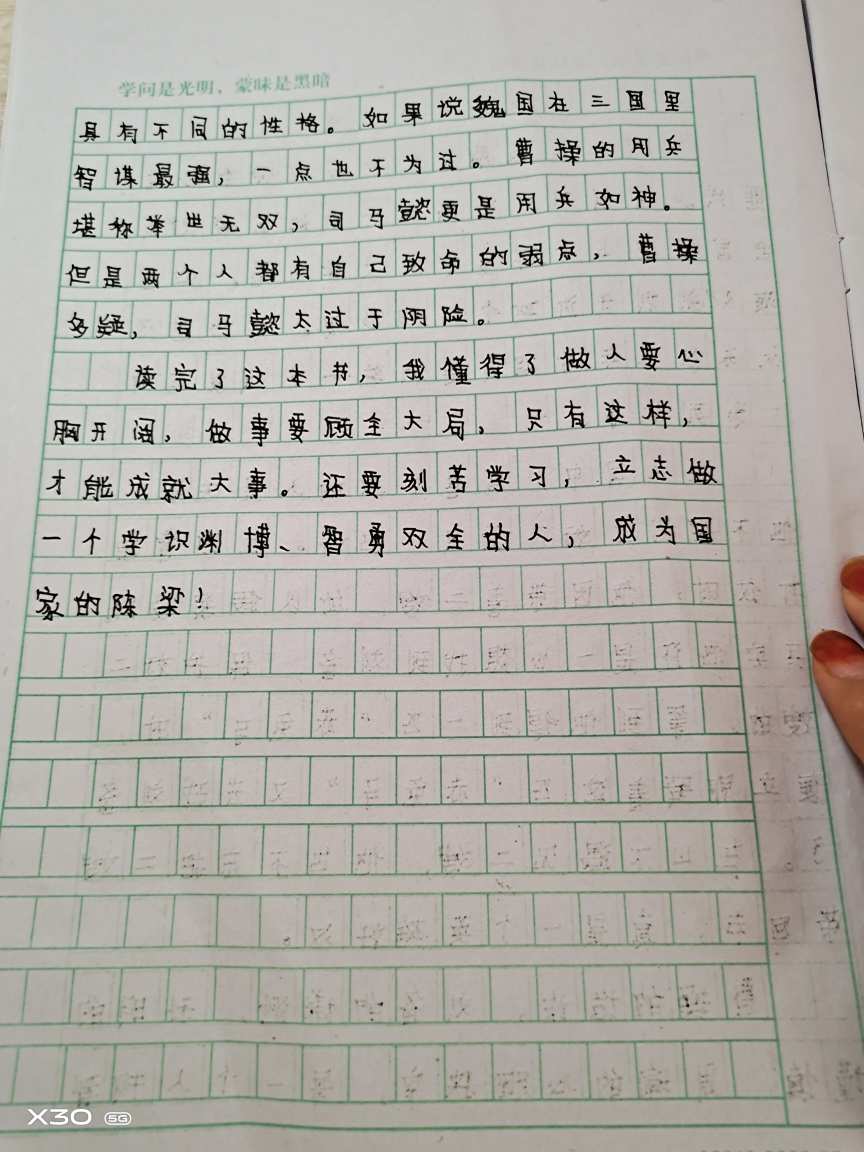 学问是光明，蒙昧是黑暗
具有不同的性格。如果说魏国在三国里
智谋最强，一点也不为过。曹操的用兵
堪称举世无双，司马懿更是用兵如神。
但是两个人都有自己致命的弱点，曹操
多疑，司马懿太过于阴险。
读完了这本书，我懂得了做人要心
胸开阔，做事要顾全大局，只有这样，
才能成就大事。还要刻苦学习，立志做
一个学识渊博、智勇双全的人，成为国
家的陈梁！
X30 5G